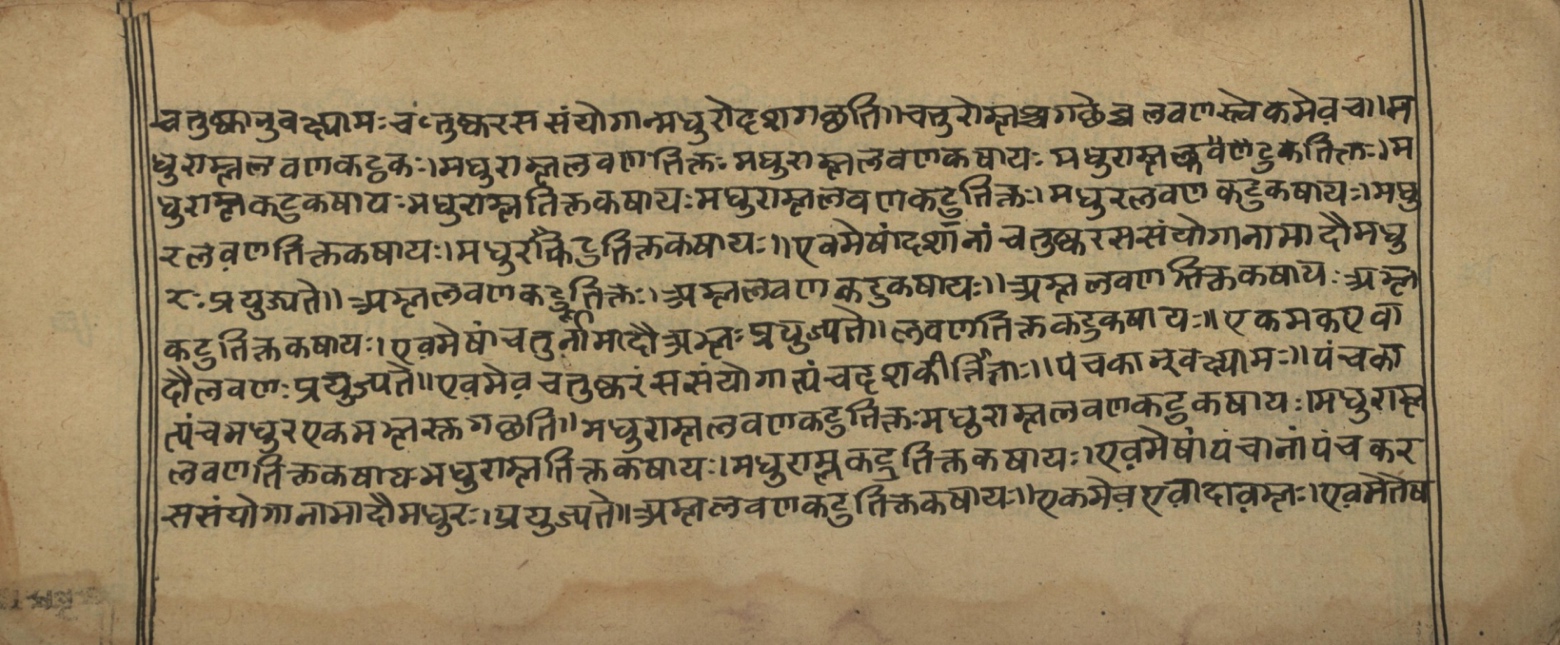 चतुष्कानुवक्ष्यामः चंतुष्करस संयोगान्मधुरोदशगछति॥चतुरोम्लश्चगछेच्च लवणस्त्वेकमेव़च॥म
धुराम्ललवणकटुकः।मधुराम्ललवणतिक्तः मधुराम्ललवणकषायः मधुराम्ल टुकतिक्तः।म
धुराम्लकटुकषायः मधुराम्लतिक्तकषायः मधुराम्ललवणकटुतिक्तः।मधुरलवण कटुकषायः।मधु
रलव़णतिक्तकषायः।मधुर तिक्तकषायः॥एवमेषांदशानां चतुष्करससंयोगानामादौमधु
रः प्रयुज्यते॥अम्ललवणकटुतिक्तः।अम्ललवण कटुकषायः॥अम्ल लवण तिक्तकषायः अम्ल
कटुतिक्तकषायः।एव़मेषांचतुर्नामादौ अम्लः प्रयुज्यते॥लवणतिक्तकटुकषायः॥एकमकएवा
दौलवणः प्रयुज्यते॥एव़मेव़ चतुष्करंससंयोगात्पंचदशकीर्तिताः॥पंचकान्वक्ष्यामः॥पंचका
त्पंचमधुरएकमम्लस्तगछति॥मधुराम्ललवणकटुतिक्तः मधुराम्ललवणकटुकषायः।मधुराम्ल
लवणतिक्तकषायः मधुराम्लतिक्तकषायः।मधुराम्लकटुतिक्तकषायः।एव़मेषांपंचानांपंचकर
ससंयोगानामादौमधुरः।प्रयुज्यते॥अम्ललवणकटुतिक्तकषायः॥एकमेव़एवादाव़म्लः।एव़मेतेष